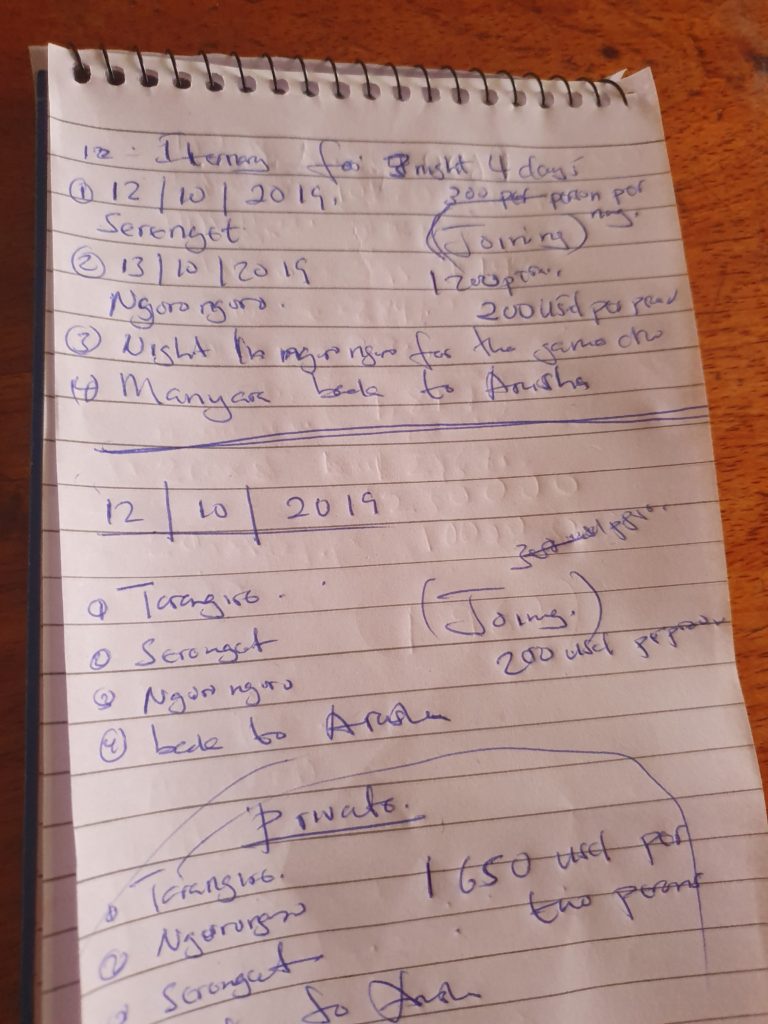 12. Iternary for 3 night 4 days
① 12 / 10 / 2019.
300 per person per
Serenget
(Joining)
② 13 / 10 / 2019
1200
Ngorongoro.
200 usd per
③ Night in ngorongoro for the game
④ Manyara back to Arusha
12 / 10 / 2019
300 usd
① Tarangire.
(Joing.)
Serenget
200 usd
③ Ngorongoro
④ back to Arusha
Private.
Tarangire.
1650 usd per
two
② Ngorongoro
Serenget
to Arusha